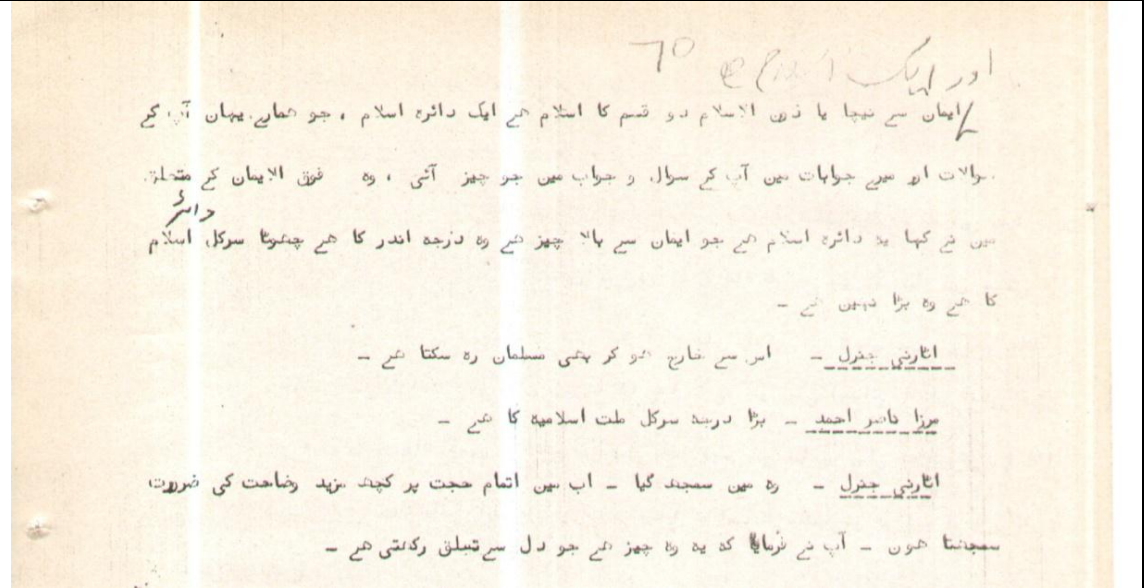 اور ایک
ایمان سے نیچا یا دون الاسلام دو قسم کا اسلام ھے ایک دائرہ اسلام ، جو ھمارے یہان آپ کے
سوالات اور میرے جوابات مین آپ کے سوال و جواب مین جو چیز آئی ، وہ فوق الایمان کے متعلق
دائرہ
مین نے کہا یہ دائرہ اسلام ھے جو ایمان سے بالا چیز ھے وہ درجہ اندر کا ھے چھوٹا سرکل اسلام
کا ھے وہ بڑا نہین ھے ـ
اٹارنی جنرل ـ اس سے خارج ھو کر بھی مسلمان رہ سکتا ھے ـ
مرزا ناصر احمد ـ بڑا درجہ سرکل ملت اسلامیہ کا ھے ـ
اٹارنی جنرل ـ وہ مین سمجھ گیا ـ اب مین اتمام حجت پر کچھ مزید وضاحت کی ضرورت
سمجھتا ھون ـ آپ نے فرمایا کہ یہ وہ چیز ھے جو دل سے تعلق رکھتی ھے ـ